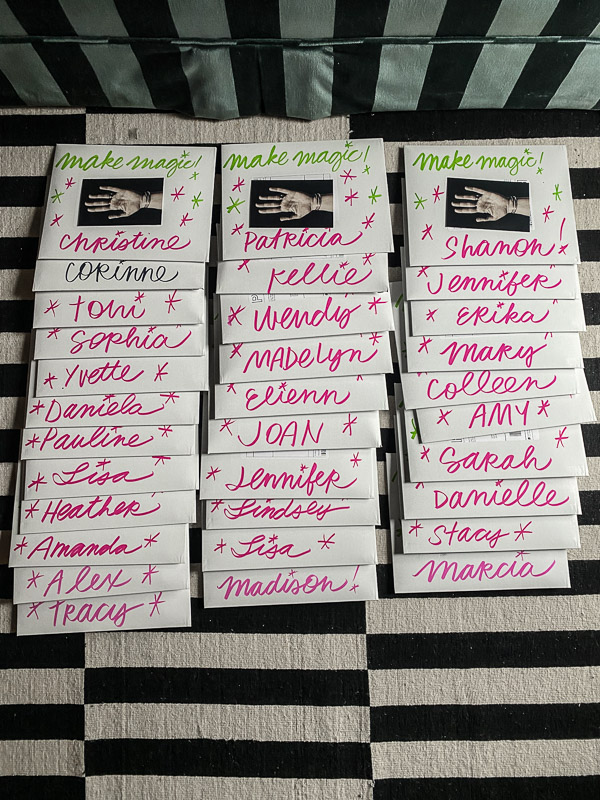 make magic!
Christine
CORINNE
Toni
Sophia
Yvette
Daniela
Pauline
Lisa
Heather
Amanda
Alex
Tracy
make magic!
Patricia
Kellie
Wendy
MADelyn
Elienn
JOAN
Jennifer
Lindsey
Lisa
Madison!
make magic!
Shanon!
Jennifer
Erika
Mary
Colleen
AMY
Sarah
Danielle
Stacy
Marcia